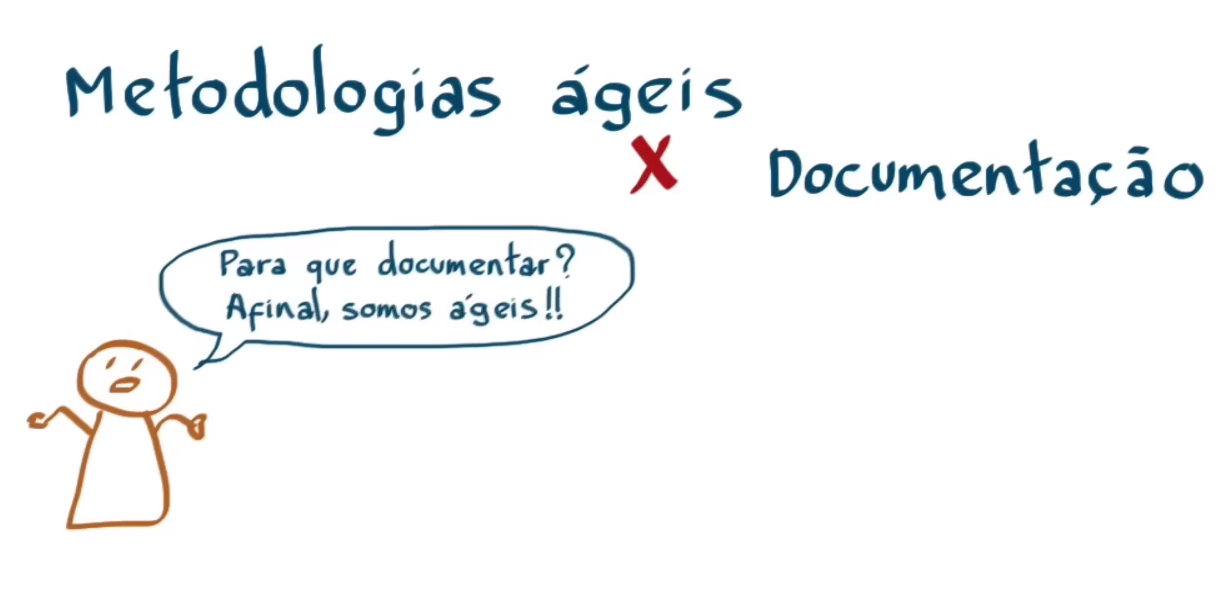 Metodologias ágeis
X
Documentação
Para que documentar?
Afinal, somos ágeis!!